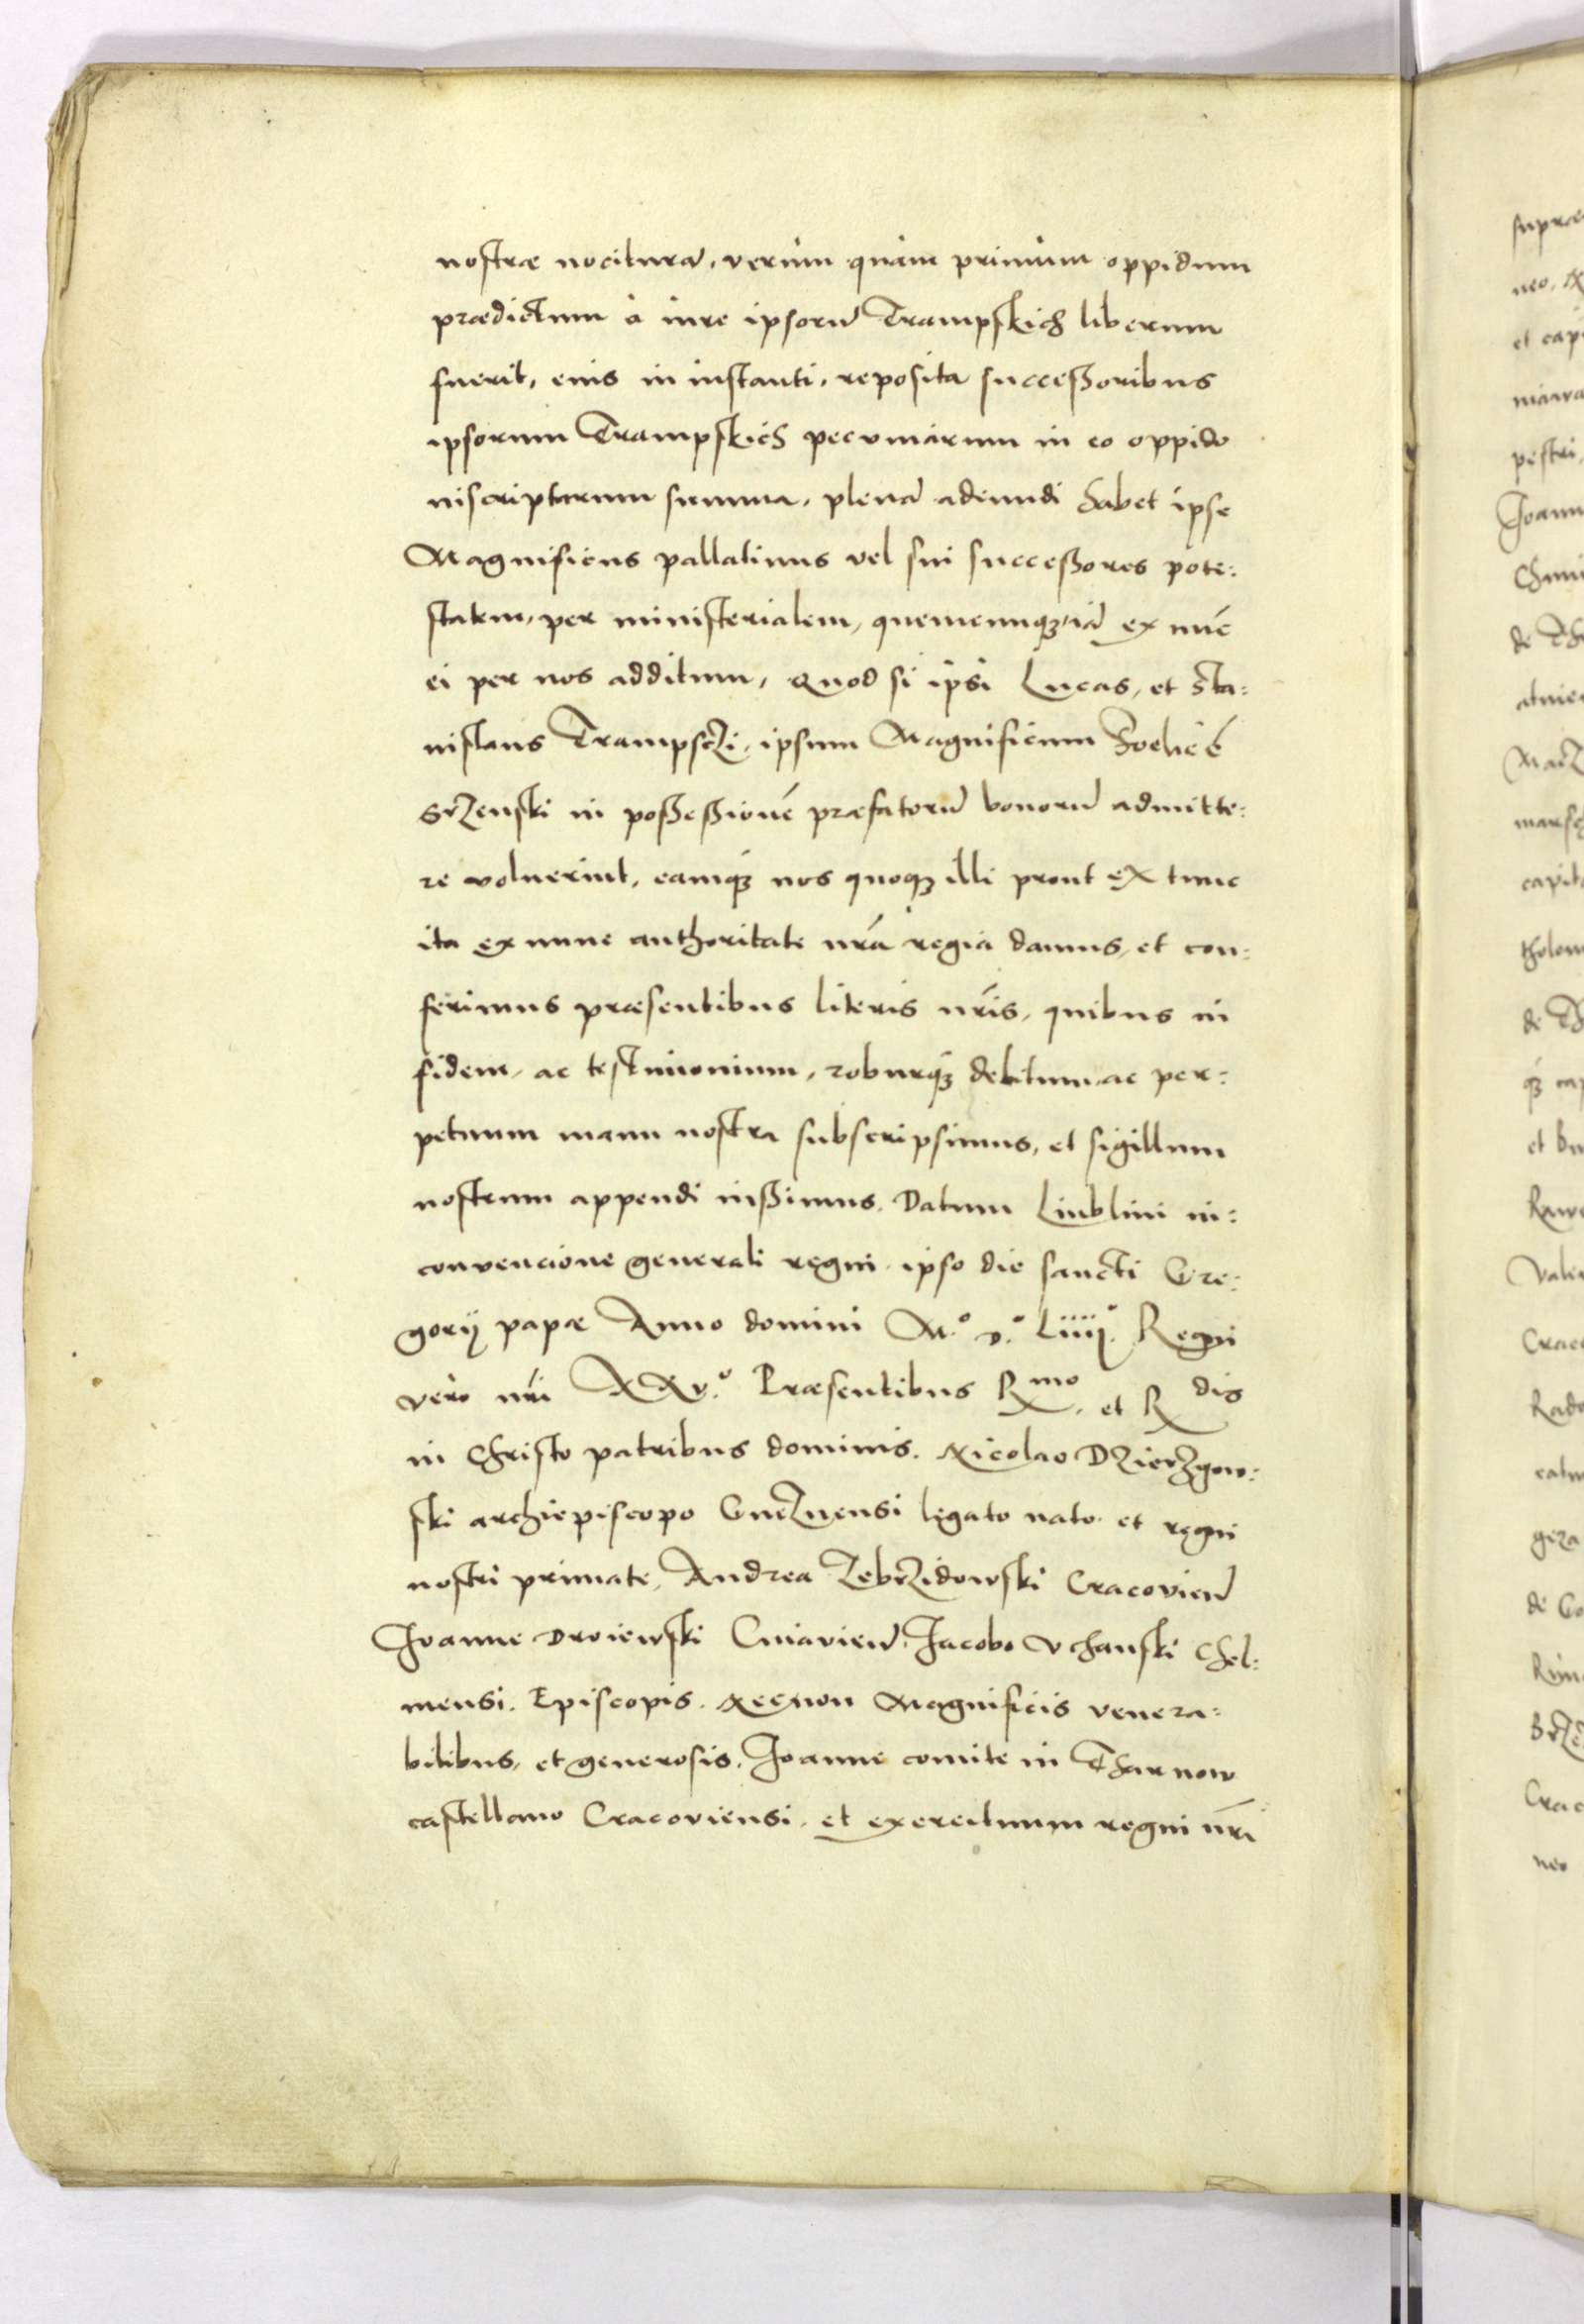 nostræ nocituram, verùm quàm primùm oppidum
prædictum à iure ipsorum Trampskich liberum
fuerit, eius in instanti, reposita successoribus
ipsorum Trampskich pecuniarum in eo oppido
inscriptarum summa, plenam adeundi habet ipse
Magnificus pallatinus vel sui successores pote:
statem, per ministerialem, quemcunq; iam ex nunc
ei per nos additum, Quod si ipsi Lucas, et Sta:
nislaus Trampsczi, ipsum Magnificum Foelicē
Srzenski in possessionē præfatorum bonorum admitte:
re voluerint, eamq; nos quoq; illi prout ex tunc
ita ex nunc authoritate nrā regia damus, et con:
ferimus præsentibus literis nrīs, quibus in
fidem, ac testimonium, roburq; debitum ac per:
petuum manu nostra subscripsimus, et sigillum
nostrum appendi iussimus. Datum Liublini in:
convencione generali regni ipso die sancti Gre:
gorij papæ Anno domini M.° D.° Liiij.° Regni
verò nrī XXv.° Præsentibus Rmo. et R dis
in Christo patribus dominis. Nicolao Dzierzgow:
ski archiepiscopo Gneznensi legato nato et regni
nostri primate, Andrea Zebrzidowski Cracovien
Joanne Droiewski Cuiavien, Jacobo Vchanski Chel:
mensi. Episcopis. Necnon Magnificis venera:
bilibus, et generosis, Joanne comite in Tharnow
castellano Cracoviensi, et exercituum regni nrī
suprae
neo,
et capi
pestri,
Joann
de Th
marsch
capita
tholom
de Th
q; cap
et bu
Rawe
Crac
Rado
gera
de Go
Crac
neo